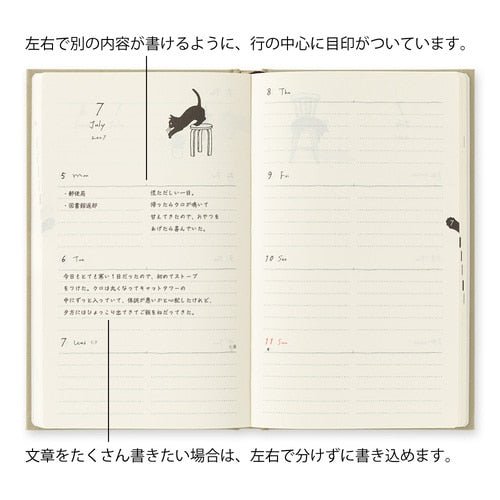 左右で別の内容が書けるように、行の中心に目印がついています。
7
July
5 Mon
・郵便局
・図書館返却
慌ただしい一日。
帰ったらクロが鳴いて
甘えてきたので、おやつを
あげたら喜んでいた。
6 Tue
今日もとても寒い1日だったので、初めてストーブ
をつけた。クロは丸くなってキャットタワーの
中にずっと入っていて、体調が悪いかと心配したけれど、
夕方にはひょっこり出てきてご飯をねだってきた。
7 Wed
8 Thu
9 Fri
10 Sat
11 Sun
7
文章をたくさん書きたい場合は、左右で分けずに書き込めます。